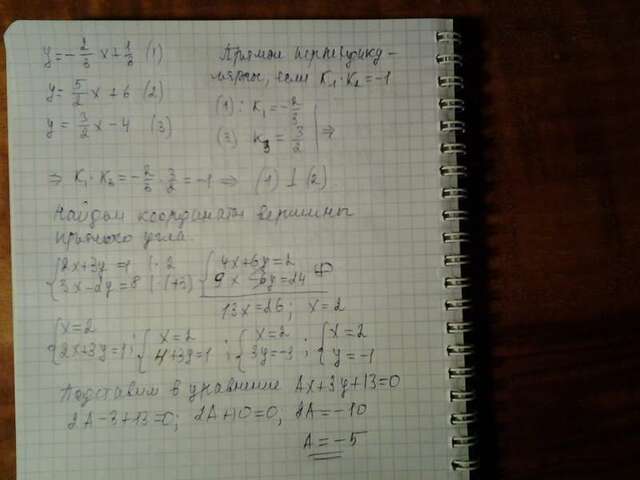 y = -2/3 x + 1/3 (1)
y = 5/2 x + 6 (2)
y = 3/2 x - 4 (3)
Прямые перпендику-
лярны, если K₁·K₂ = -1
(1): K₁ = -2/3
(3) K₃ = 3/2 | ⇒
⇒ K₁·K₂ = -2/3 · 3/2 = -1 ⇒ (1) ⊥ (2)
Найдём координаты вершины
прямого угла
{2x+3y=1 |·2 {4x+6y=2
{3x-2y=8 |·(+3) {9x-6y=24 ⊕
13x=26; x=2
{x=2 {x=2 {x=2 {x=2
{2x+3y=1; {4+3y=1; {3y=-3; {y=-1
Подставим в уравнение Ax+3y+13=0
2A-3+13=0; 2A+10=0; 2A=-10
A=-5